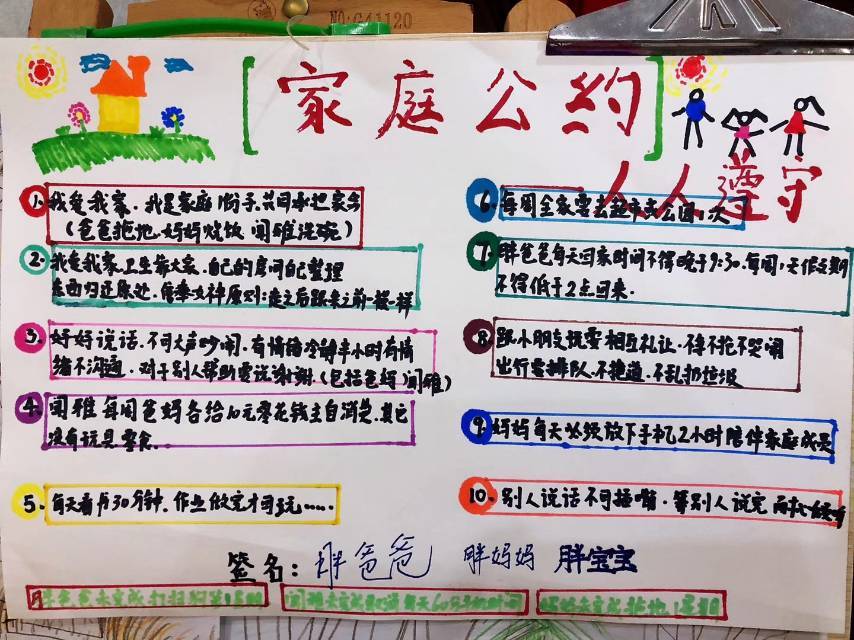 NO:G41120
家庭公约
一人人遵守
1. 我爱我家．我是家庭1份子．共同承担家务
（爸爸拖地．妈妈烧饭 闻雅洗碗）
2. 我爱我家．卫生靠大家．自己的房间自己整理
东西归还原处．原则：走之后跟来之前一模一样
3. 好好说话．不可大声吵闹．有情绪冷静半小时有情
绪不沟通．对于别人帮助要说谢谢（包括爸妈 闻雅）
4. 闻雅每周爸妈各给10元零花钱自消费．其它
没有玩具零食．
5. 每天看书30分钟．作业做完才可玩……
6. 每周全家要去超市或公园1次
7. 胖爸爸每天回家时间不得晚于9:30．每周1天
不得低于2点回来．
8. 跟小朋友玩要相互礼让．不哭闹
出行要排队．不乱扔垃圾
9. 妈妈每天必须放下手机2小时陪伴家庭成员
10. 别人说话不可插嘴．等别人说完
签名：胖爸爸 胖妈妈 胖宝宝